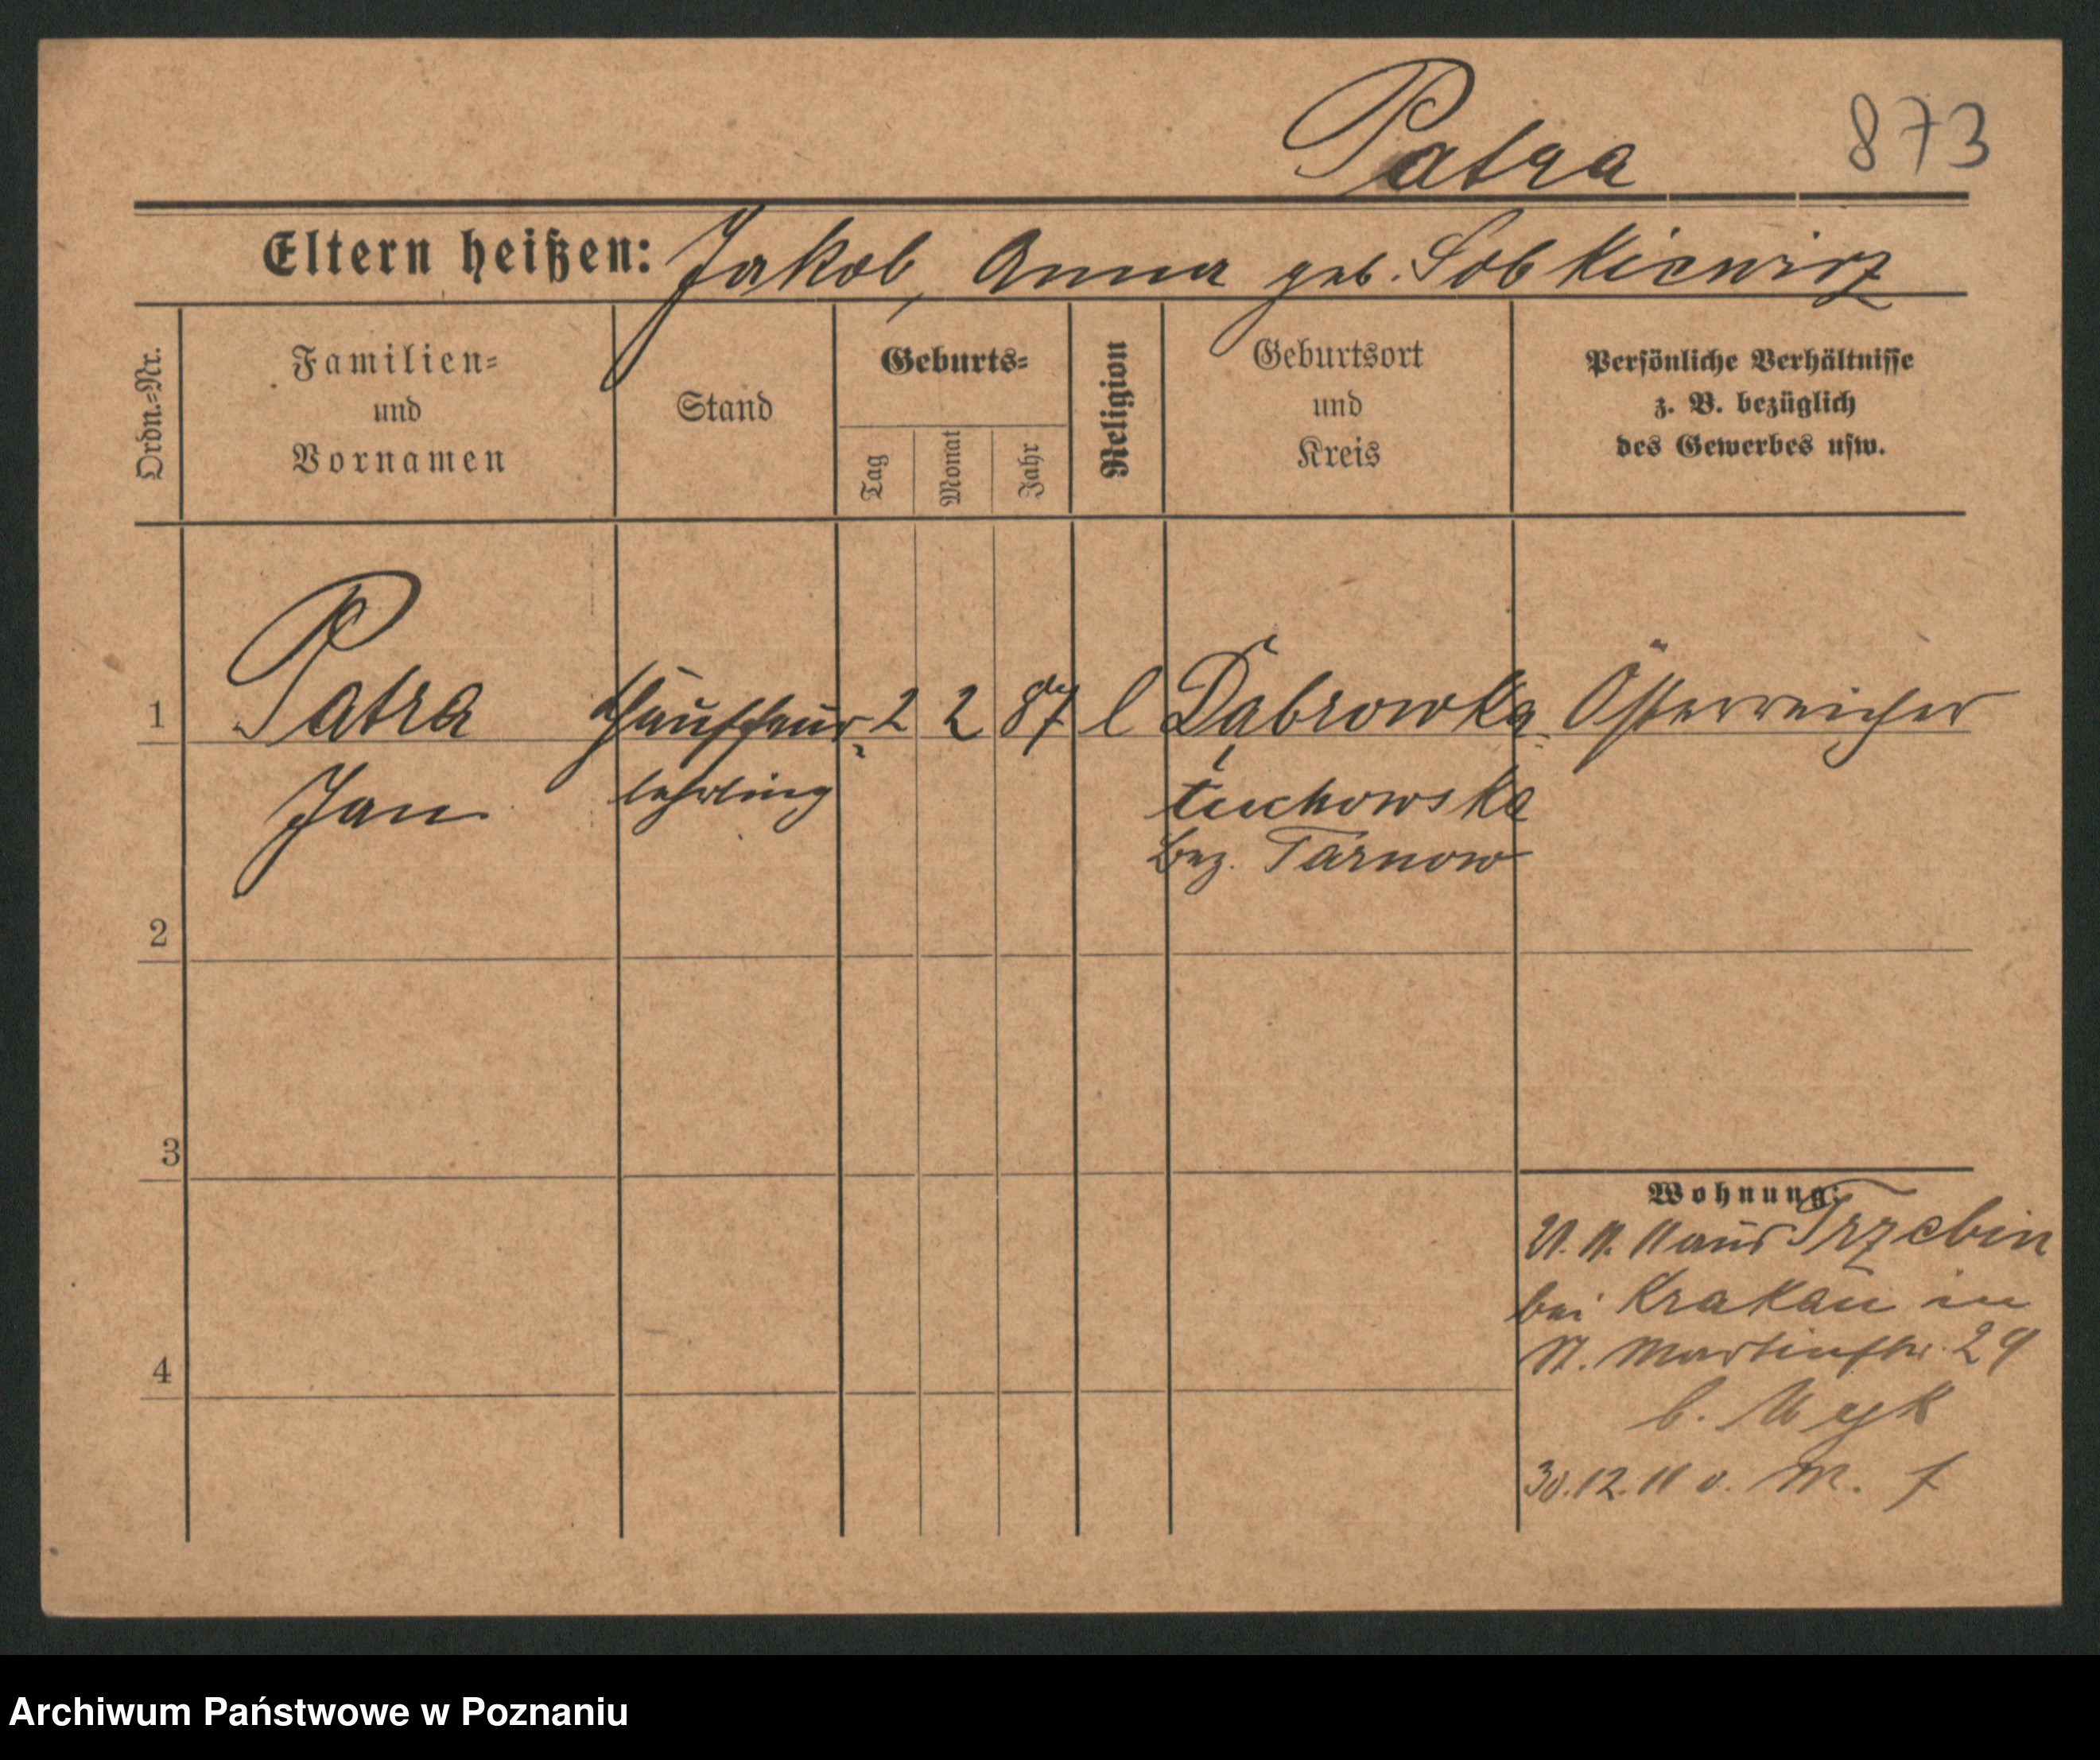 Patra 873
Eltern heißen: Jakob, Anna geb. Sobkiewicz
Ordn.-Nr.
Familien-
und
Vornamen
Stand
Geburts-
Tag
Monat
Jahr
Religion
Geburtsort
und
Kreis
Persönliche Verhältnisse
z. B. bezüglich
des Gewerbes usw.
1 Patra Chauffeur- 2 2 87 l Dąbrowka- Österreicher
Jan lehrling tuchowska
Bez. Tarnow
2
3
4
Wohnung:
21. 11. 11 aus Trzebin
bei Krakau in
St. Martinstr. 29
b.
30.12.11 v. M. f
Archiwum Państwowe w Poznaniu